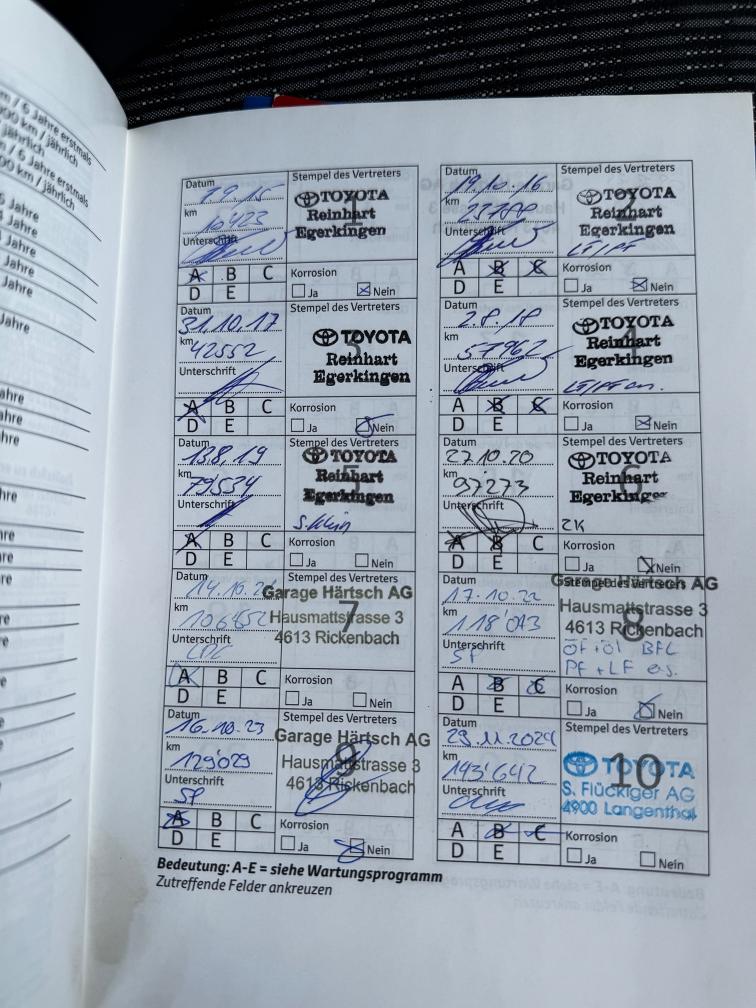 / 6 Jahre erstmals
000 km / jährlich
jährlich
/ 6 Jahre erstmals
00 km / jährlich
Jahre
Jahre
Jahre
Jahre
Jahre
Jahre
Datum
km 10423
Unterschrift
Stempel des Vertreters
1
TOYOTA
Reinhart
Egerkingen
A B C
D E
Korrosion
Ja Nein
Datum 19.10.16
km
Unterschrift
Stempel des Vertreters
2
TOYOTA
Reinhart
Egerkingen
A B C
D E
Korrosion
Ja Nein
Datum 31.10.17
km 42552
Unterschrift
Stempel des Vertreters
3
TOYOTA
Reinhart
Egerkingen
A B C
D E
Korrosion
Ja Nein
Datum 2.8.18
km 57962
Unterschrift
Stempel des Vertreters
4
TOYOTA
Reinhart
Egerkingen
A B C
D E
Korrosion
Ja Nein
Datum 13.8.19
km 79534
Unterschrift
Stempel des Vertreters
5
TOYOTA
Reinhart
Egerkingen
A B C
D E
Korrosion
Ja Nein
Datum 27.10.20
km 97273
Unterschrift
Stempel des Vertreters
6
TOYOTA
Reinhart
Egerkingen
ZK
A B C
D E
Korrosion
Ja Nein
Datum
km 106452
Unterschrift
Stempel des Vertreters
7
Garage Härtsch AG
Hausmattstrasse 3
4613 Rickenbach
A B C
D E
Korrosion
Ja Nein
Datum 17.10.22
km 118'043
Unterschrift
SF
Stempel des Vertreters
8
Garage Härtsch AG
Hausmattstrasse 3
4613 Rickenbach
ÖF+Öl BFL
PF+LF es.
A B C
D E
Korrosion
Ja Nein
Datum 16.10.23
km 129'029
Unterschrift
SF
Stempel des Vertreters
9
Garage Härtsch AG
Hausmattstrasse 3
4613 Rickenbach
A B C
D E
Korrosion
Ja Nein
Datum 29.11.2024
km 143'642
Unterschrift
Stempel des Vertreters
10
TOYOTA
S. Flückiger AG
4900 Langenthal
A B C
D E
Korrosion
Ja Nein
Bedeutung: A-E = siehe Wartungsprogramm
Zutreffende Felder ankreuzen